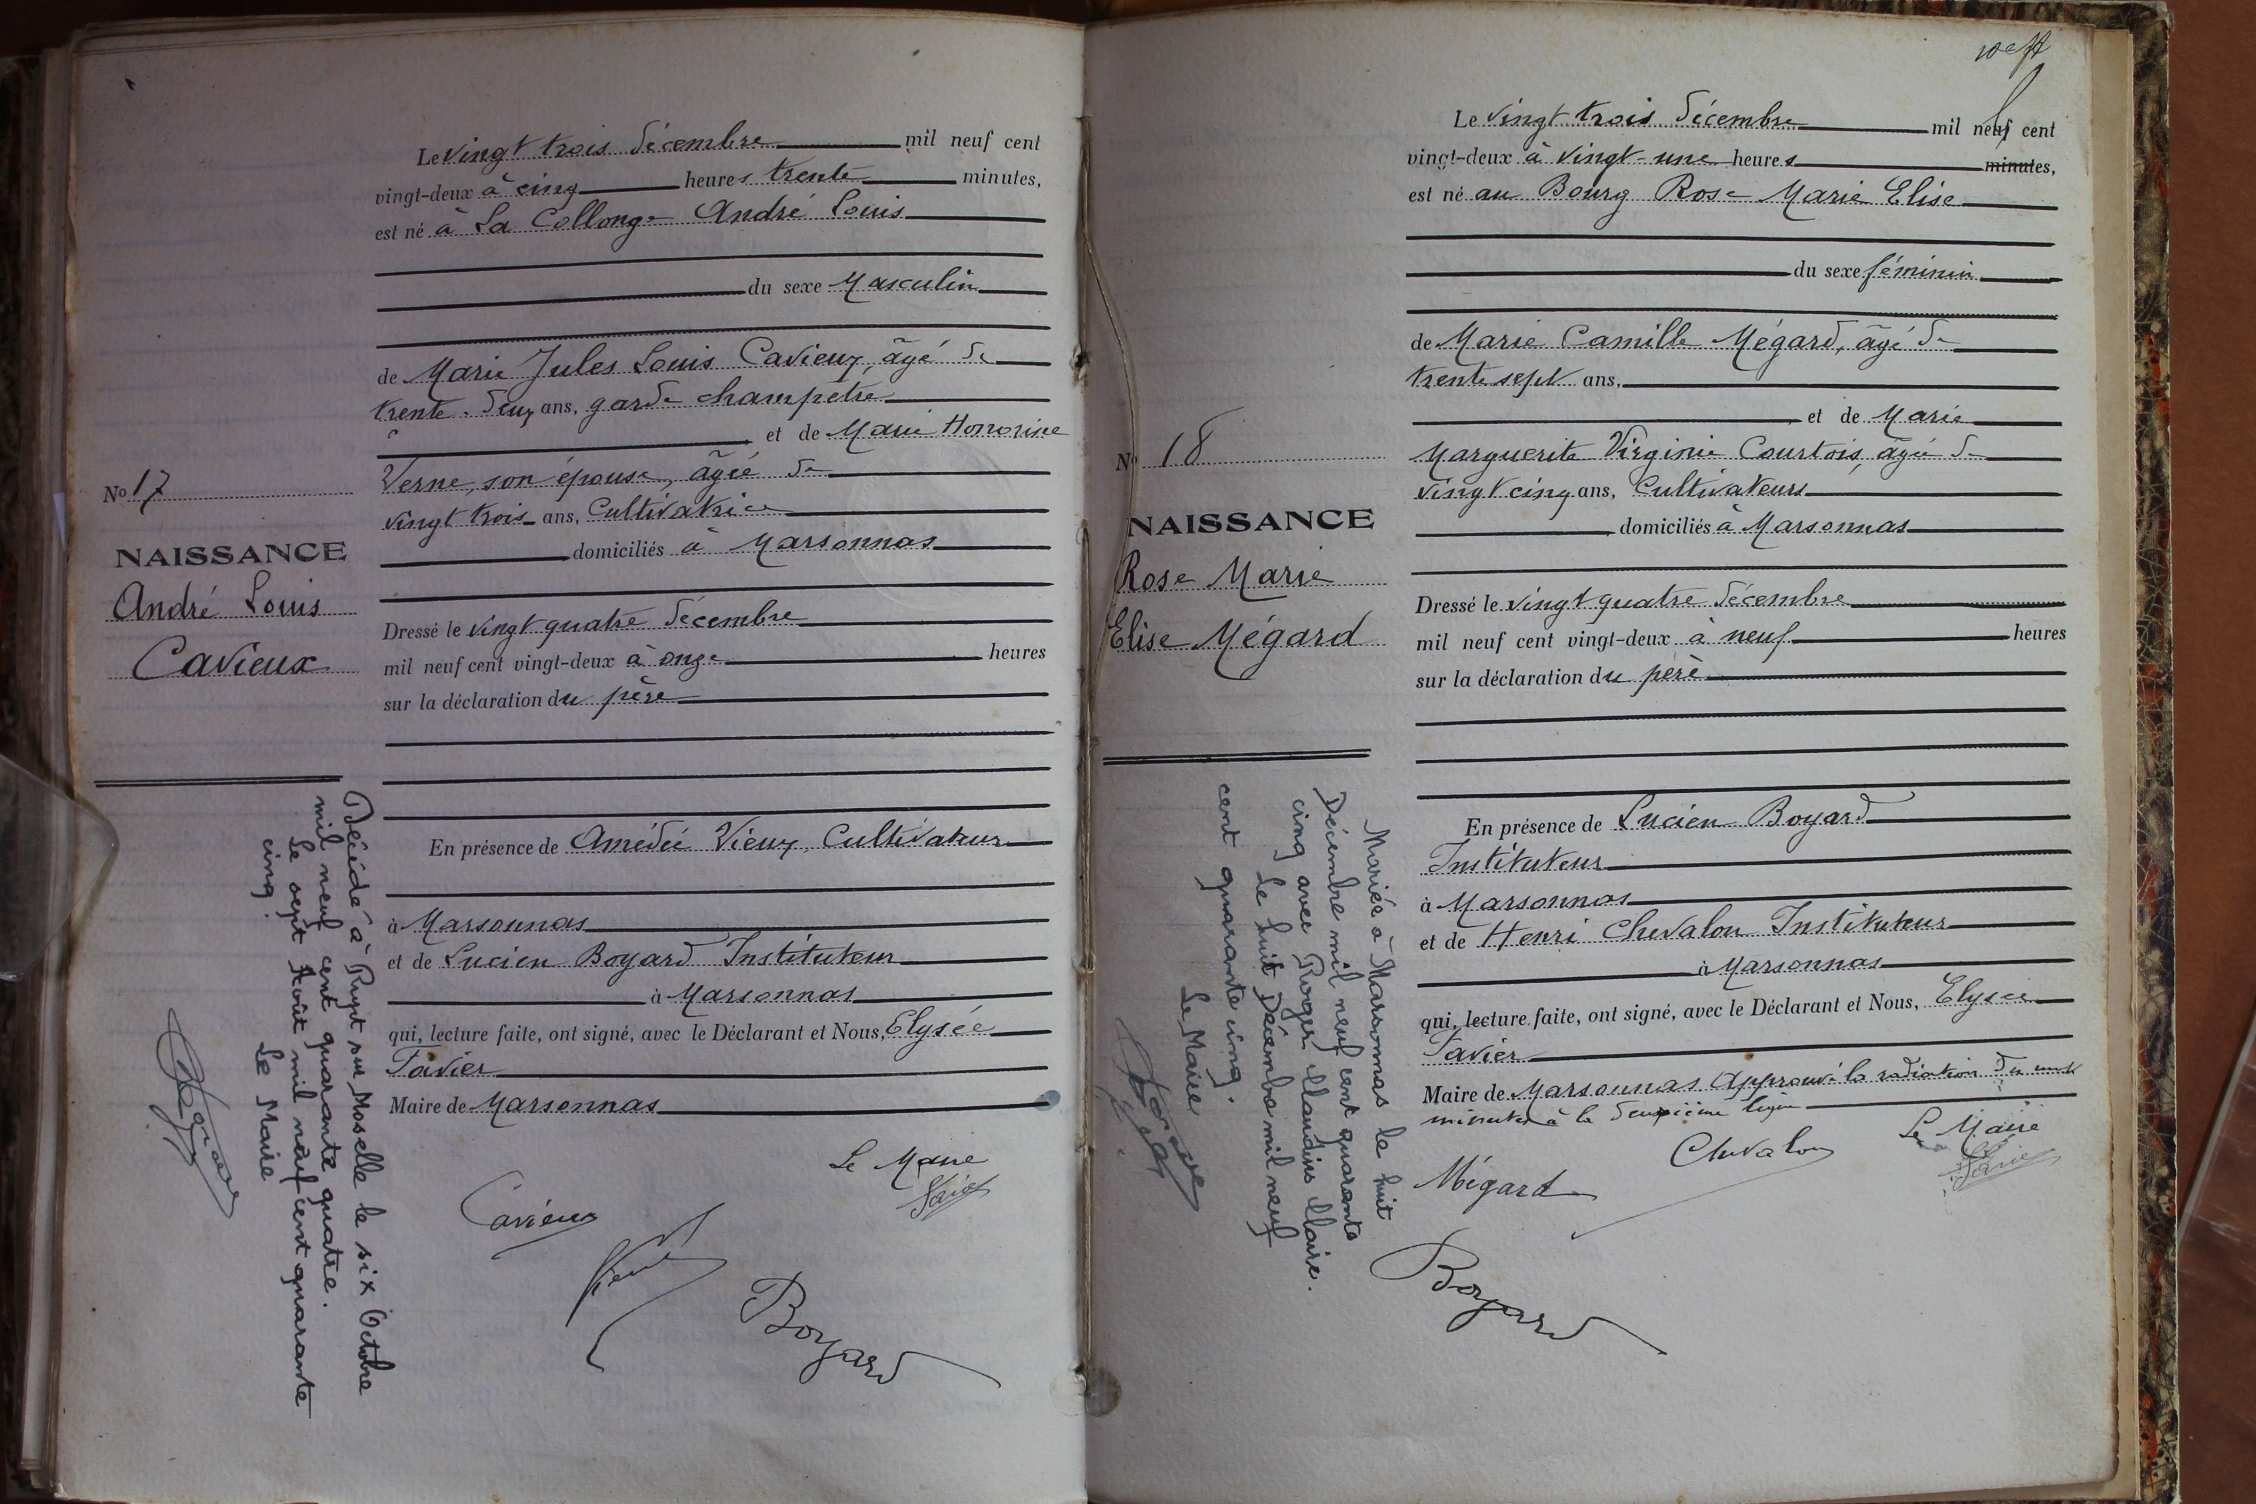 Le vingt trois décembre mil neuf cent
vingt-deux à cinq heures trente minutes,
est né à La Collonge André Louis
du sexe Masculin
de Marie Jules Louis Cavieux, âgé de
trente-deux ans, garde champêtre
et de Marie Honorine
Verne, son épouse, âgée de
vingt trois ans, Cultivatrice
domiciliés à Marsonnas
Dressé le vingt quatre décembre
mil neuf cent vingt-deux à onze heures
sur la déclaration du père
En présence de Amédée Vieux Cultivateur
à Marsonnas
et de Lucien Boyard Instituteur
à Marsonnas
qui, lecture faite, ont signé, avec le Déclarant et Nous, Elysée
Favier
Maire de Marsonnas
Le Maire
Favier
Cavieux
Vieux
Boyard
No 17
NAISSANCE
André Louis
Cavieux
Décédé à Rugt sur Moselle le six Octobre
mil neuf cent quarante quatre.
Le sept Août mil neuf cent quarante
cinq. Le Maire
Le vingt trois décembre mil neuf cent
vingt-deux à vingt-une heures minutes,
est né au Bourg Rose Marie Elise
du sexe féminin
de Marie Camille Mégard, âgé de
trente sept ans,
et de Marie
Marguerite Virginie Courtois, âgée de
vingt cinq ans, Cultivateurs
domiciliés à Marsonnas
Dressé le vingt quatre décembre
mil neuf cent vingt-deux à neuf heures
sur la déclaration du père
En présence de Lucien Boyard
Instituteur
à Marsonnas
et de Henri Chevalon Instituteur
à Marsonnas
qui, lecture faite, ont signé, avec le Déclarant et Nous, Elysée
Favier
Maire de Marsonnas Approuvé la radiation du mot
minutes à la deuxième ligne
Le Maire
Favier
Chevalon
Mégard
Boyard
No 18
NAISSANCE
Rose Marie
Elise Mégard
Mariée à Marsonnas le huit
Décembre mil neuf cent quarante
cinq avec Roger Claudius Claire.
Le huit Décembre mil neuf
cent quarante cinq.
Le Maire